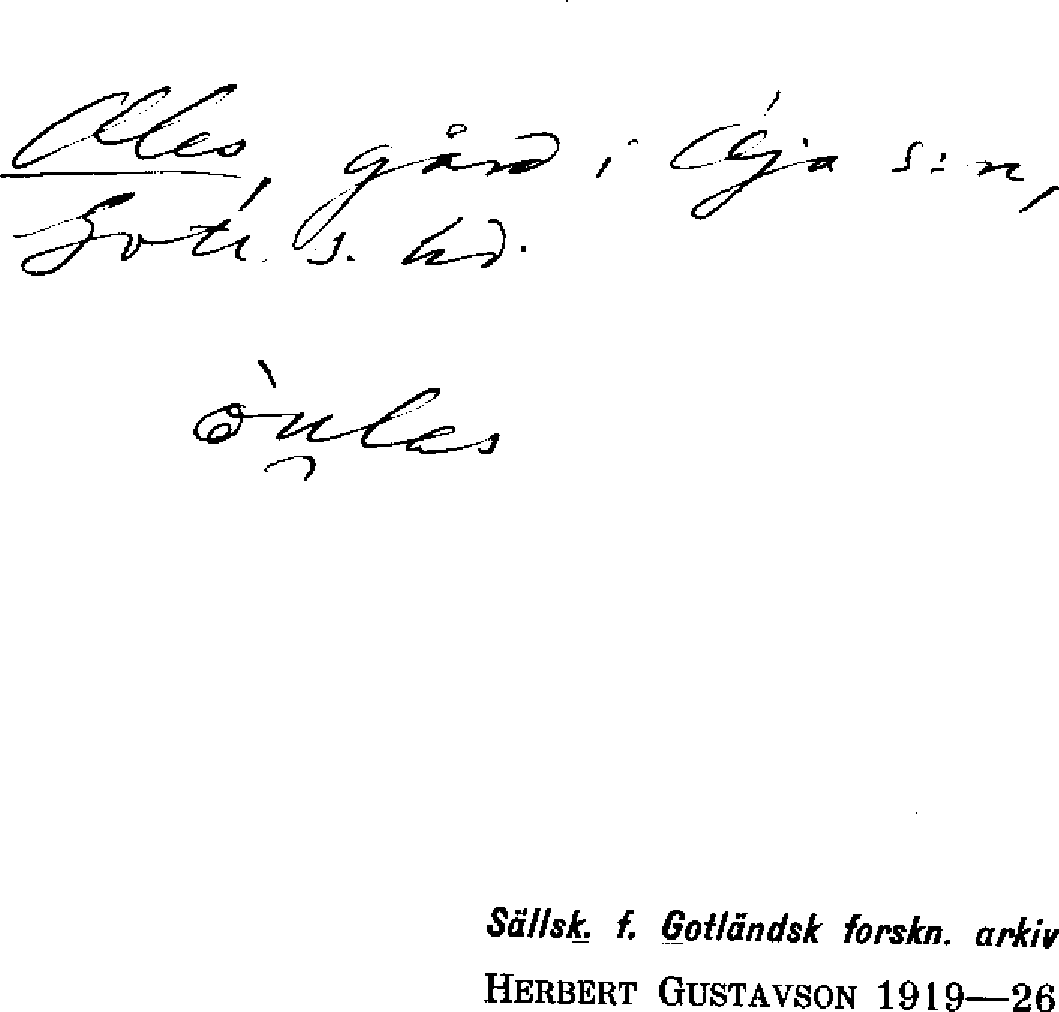 Olles, gård i Öja s:n,
Gotl. s. hd.
òu̯las
Sällsk. f. Gotländsk forskn. arkiv
HERBERT GUSTAVSON 1919—26